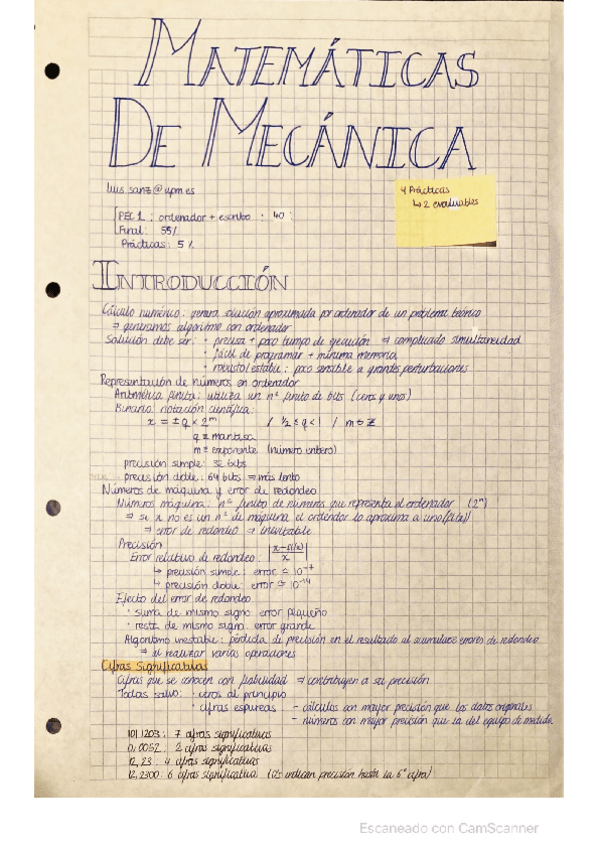 MATEMÁTICAS
DE MECÁNICA
luis.sanz@upm.es
4 Prácticas
↳ 2 evaluables
PEC 1 : ordenador + escrito : 40
Final : 55%
Prácticas : 5%
INTRODUCCIÓN
Cálculo numérico : genera solución aproximada por ordenador de un problema teórico
⇒ generamos algoritmo con ordenador
Solución debe ser : · precisa + poco tiempo de ejecución ⇒ complicado simultaneidad
· fácil de programar + mínima memoria
· robusto/estable : poco sensible a grandes perturbaciones
Representación de números en ordenador
Aritmética finita : utiliza un nº finito de bits (ceros y unos)
Binario : notación científica :
x = ± q × 2^m / 1/2 ≤ q < 1 / m ∈ Z
q = mantisa
m = exponente (número entero)
precisión simple : 32 bits
precisión doble : 64 bits ⇒ más lento
Números de máquina y error de redondeo
Números máquina : nº finito de números que representa el ordenador (2^n)
⇒ si x no es un nº de máquina el ordenador lo aproxima a uno (fl(x))
⇒ error de redondeo ⇒ inevitable
Precisión
Error relativo de redondeo : |x - fl(x) / x|
↳ precisión simple : error ≃ 10^-7
↳ precisión doble : error ≃ 10^-14
Efecto del error de redondeo
· suma de mismo signo : error pequeño
· resta de mismo signo : error grande
Algoritmo inestable : pérdida de precisión en el resultado al acumularse errores de redondeo
⇒ al realizar varias operaciones
Cifras Significativas
Cifras que se conocen con fiabilidad ⇒ contribuyen a su precisión
Todas salvo : · ceros al principio
· cifras espureas : - cálculos con mayor precisión que los datos originales
- números con mayor precisión que la del equipo de medida
101,1203 : 7 cifras significativas
0,0052 : 2 cifras significativas
12,23 : 4 cifras significativas
12,2300 : 6 cifras significativa (0s indican precisión hasta la 6ª cifra)
Escaneado con CamScanner